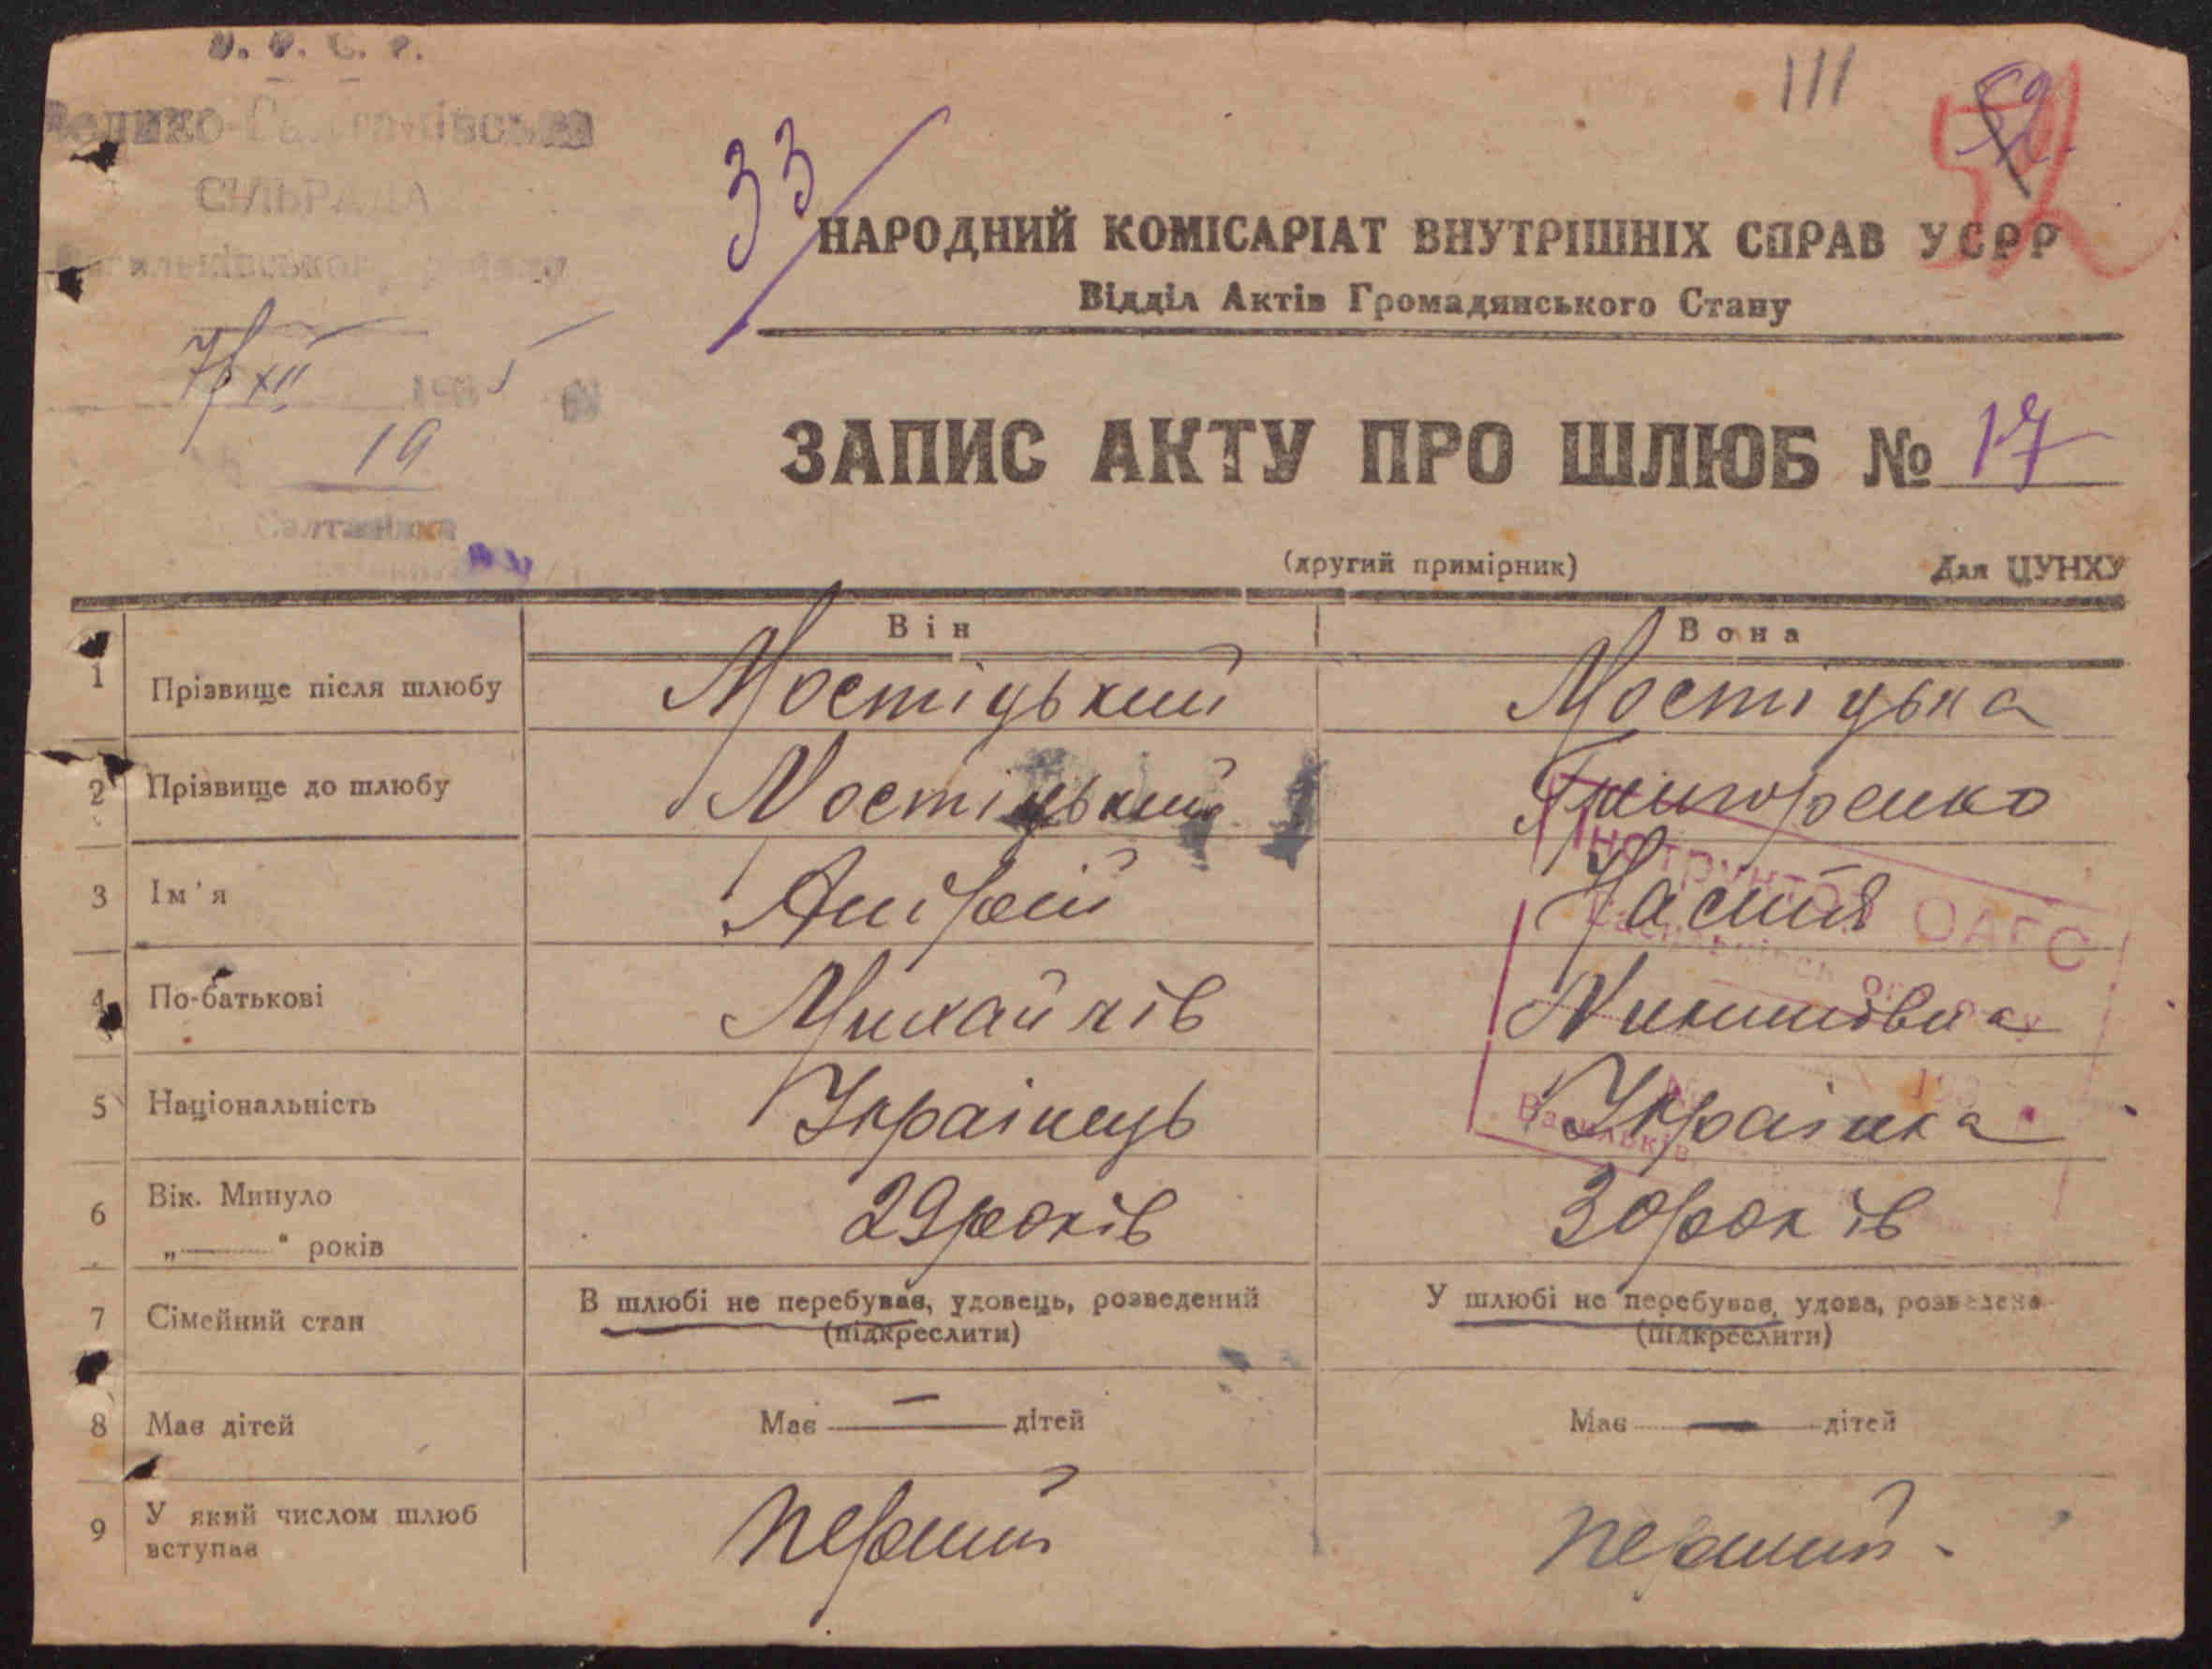 У. Р. С. Р.
Велико-Салтанівська
СІЛЬРАДА
Васильківського району
111
33
XII 1935
19
Салтанівка
НАРОДНИЙ КОМІСАРІАТ ВНУТРІШНІХ СПРАВ УСРР
Відділ Актів Громадянського Стану
ЗАПИС АКТУ ПРО ШЛЮБ № 17
(другий примірник) Для ЦУНХУ
Він Вона
1 Прізвище після шлюбу Мостіцький Мостіцька
2 Прізвище до шлюбу Мостіцький Григоренко
3 Ім'я Андрій Настя
4 По-батькові Михайлів
5 Національність Українець Українка
6 Вік. Минуло
„——" років 29 років 30 років
7 Сімейний стан В шлюбі не перебував, удовець, розведений У шлюбі не перебував, удова, розведена
(підкреслити) (підкреслити)
8 Має дітей Має — дітей Має — дітей
9 У який числом шлюб
вступає перший перший
Інструктор ОАГС
193
Васильків